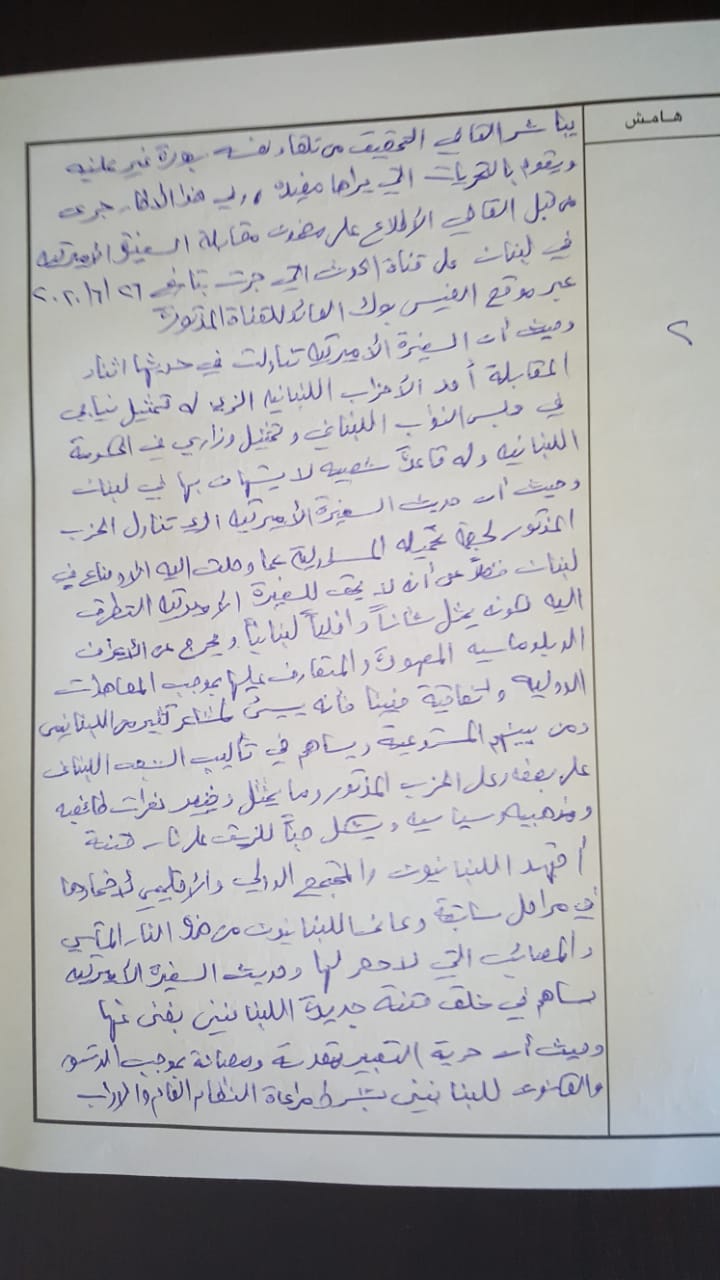 هامش
٢
يباشر القاضي التحقيق من تلقاء نفسه بصورة غير علنية
ويقوم بالتحريات التي يراها مفيدة وفي هذا الاطار جرى
من قبل القاضي الاطلاع على مضمون مقابلة السفيرة الاميركية
في لبنان على قناة الحدث التي جرت بتاريخ ٢٦/٦/٢٠٢٠
عبر موقع الفيس بوك العائد للقناة المذكورة
وحيث أن السفيرة الاميركية تناولت في حديثها اثناء
المقابلة أحد الأحزاب اللبنانية الذي له تمثيل نيابي
في مجلس النواب اللبناني وتمثيل وزاري في الحكومة
اللبنانية وله قاعدة شعبية لا يستهان بها في لبنان
وحيث أن حديث السفيرة الأميركية الذي تناول الحزب
المذكور لجهة تحميله المسؤولية عما وصلت اليه الاوضاع في
لبنان فضلاً عن أنه لا يحق للسفيرة الاميركية التطرق
اليه كونه يمثل شأناً داخلياً لبنانياً ويخرج عن الأعراف
الدبلوماسية المعهودة والمتعارف عليها بموجب المعاهدات
الدولية واتفاقية فيينا فأنه يسيئ لمشاعر كثير من اللبنانيين
ومن بينهم المستدعية ويساهم في تأليب الشعب اللبناني
على بعضه وعلى الحزب المذكور وما يمثل ويثير نعرات طائفية
ومذهبية وسياسية ويشكل صباً للزيت على نار فتنة
أجهد اللبنانيون والمجتمع الدولي والأقليمي لاخمادها
في مراحل سابقة وعانى اللبنانيون من هذه النار المآسي
والمصائب التي لا حصر لها وحديث السفيرة الاميركية
يساهم في خلق فتنة جديدة اللبنانيين بغنى عنها
وحيث أن حرية التعبير مقدسة ومصانة بموجب الدستور
والقانون للبنانيين بشرط مراعاة النظام العام والاداب